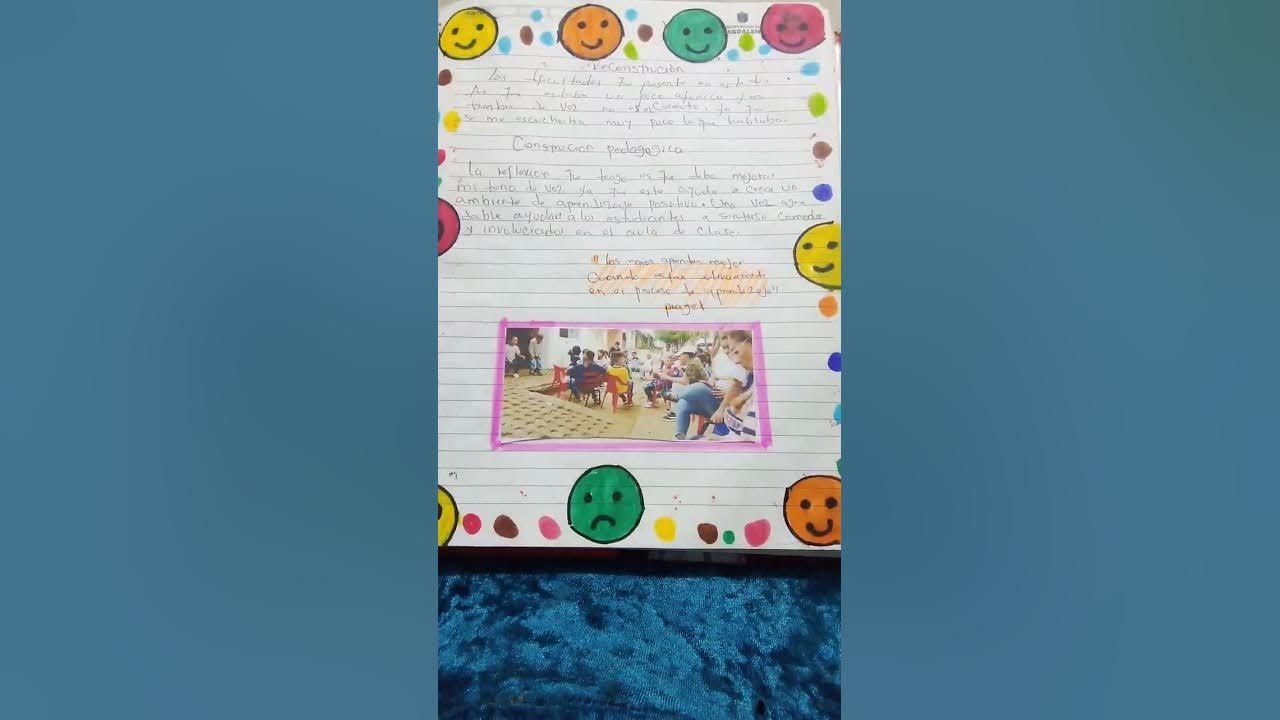 AGDALENA
reconstrucion
que presente en este
que estaba un poco y mi
timbre de voz no es ya que
se me escuchaba muy poco lo que hablaba.
Construcion pedagogica
La reflexion que tengo es que debo mejorar
mi tono de voz ya que esto ayuda a crear un
ambiente de aprendizaje positivo. Una voz agra
dable ayudar a los estudiantes a sentirse comodos
y involucrados en el aula de clase.
"los niños aprenden mejor
Cuando estan activamente
en el proceso de aprendizaje"
piaget